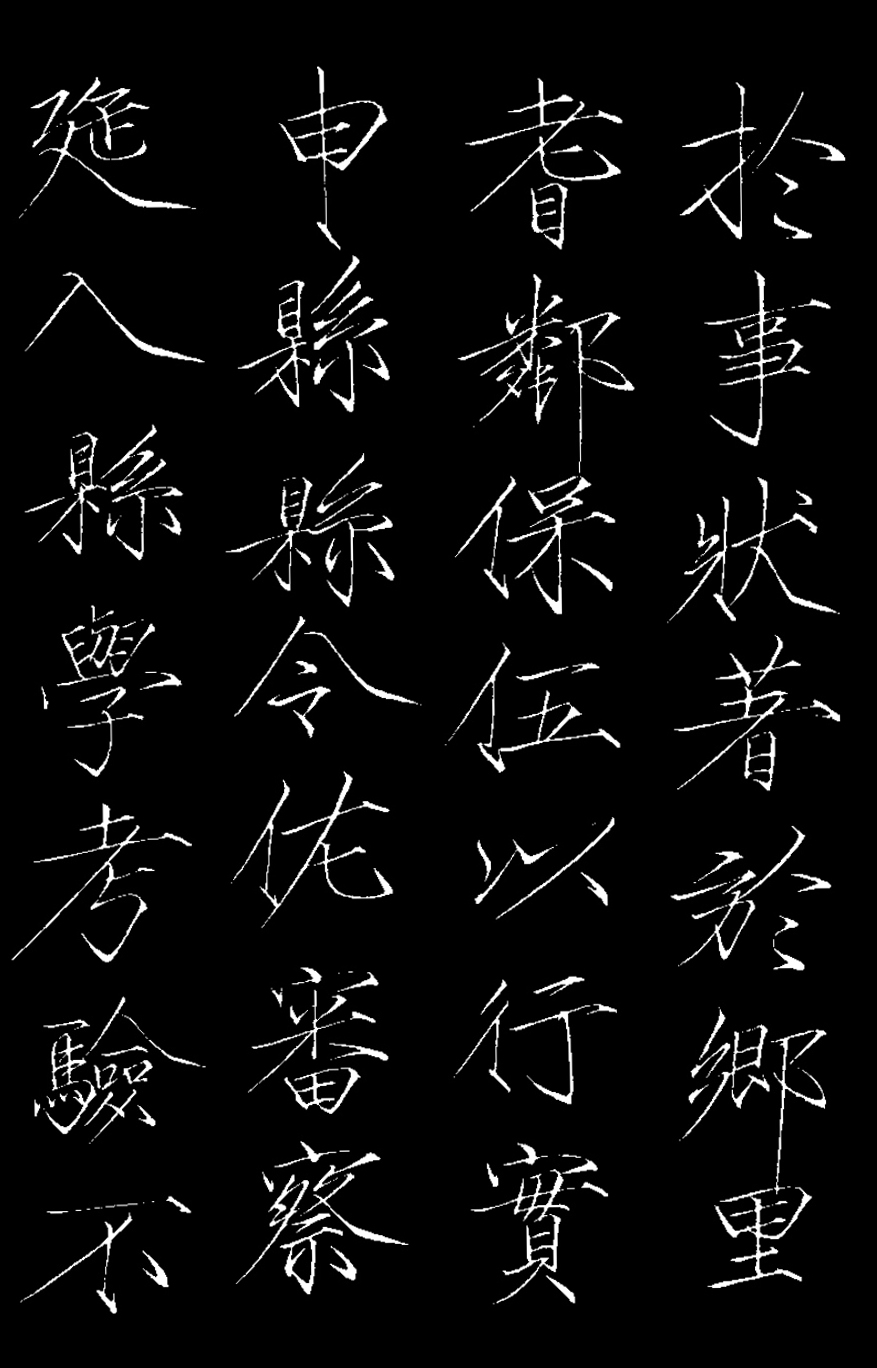 於事狀著於鄉里
耆鄰保伍以行實
申縣縣令佐審察
延入縣學考驗不